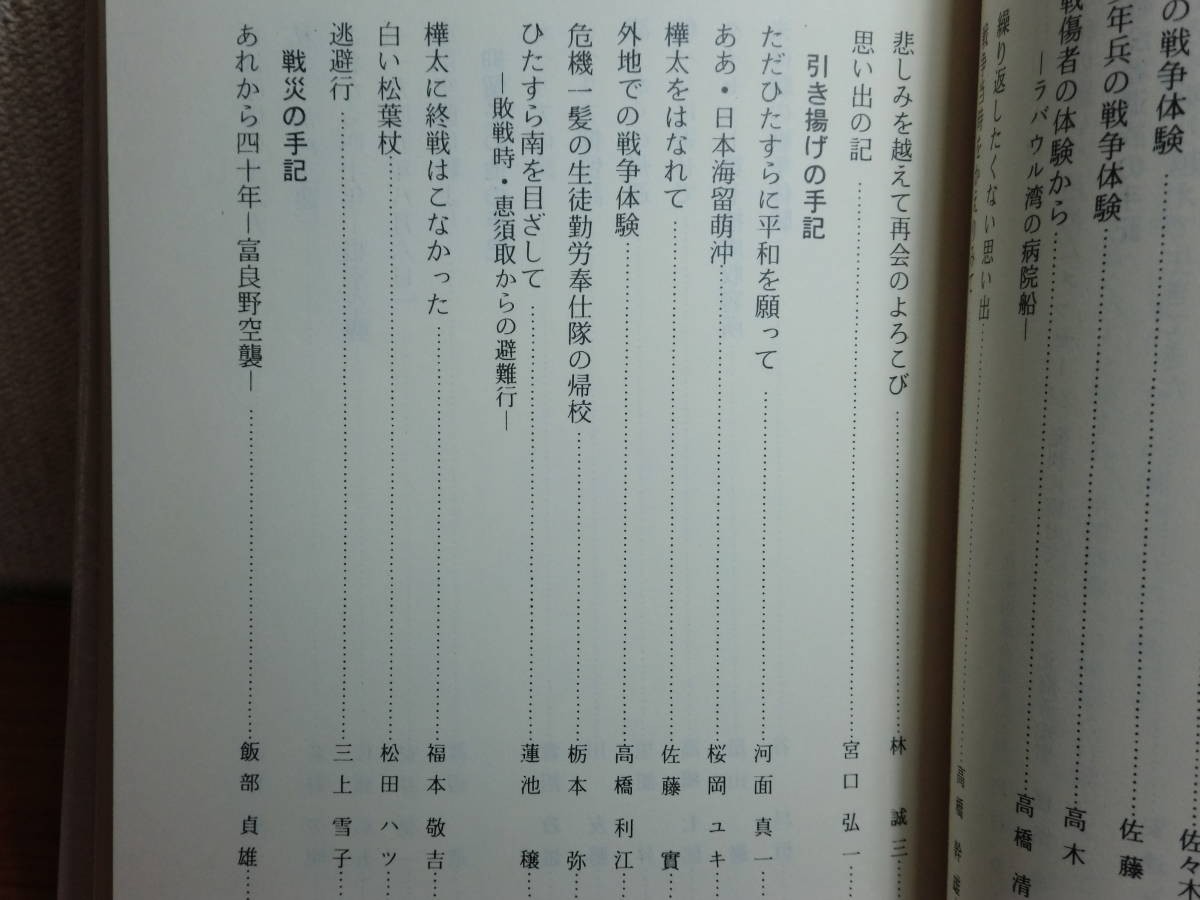 の戦争体験
佐々木
年兵の戦争体験
佐藤
戦傷者の体験から
高木
―ラバウル湾の病院船―
高橋清
繰り返したくない思い出
高橋幹雄
悲しみを越えて再会のよろこび
林誠三
思い出の記
宮口弘一
引き揚げの手記
ただひたすらに平和を願って
河面真一
ああ・日本海留萌沖
桜岡ユキ
樺太をはなれて
佐藤實
外地での戦争体験
高橋利江
危機一髪の生徒勤労奉仕隊の帰校
栃本弥
ひたすら南を目ざして
蓮池穣
―敗戦時・恵須取からの避難行―
樺太に終戦はこなかった
福本敬吉
白い松葉杖
松田ハツ
逃避行
三上雪子
戦災の手記
あれから四十年―富良野空襲―
飯部貞雄